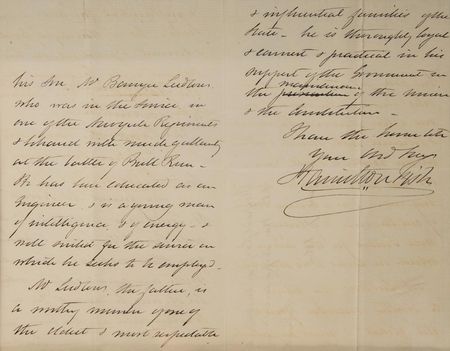 his son, Mr Ludlow
who was in the service in
one of the Regiments
& behaved with much gallantry
at the battle of Bull Run –
He has been educated as an
Engineer & is a young man
of intelligence, & of energy – &
well suited for the service in
which he seeks to be employd –
Mr Ludlow, the father, is
a worthy member of one of
the oldest & most respectable
& influential families of the
State – he is thoroughly loyal
& earnest & practical in his
support of the Government in
the maintenance of the Union
& the Constitution –
I have the honor to be
Your Obt Servt
Hamilton Fish